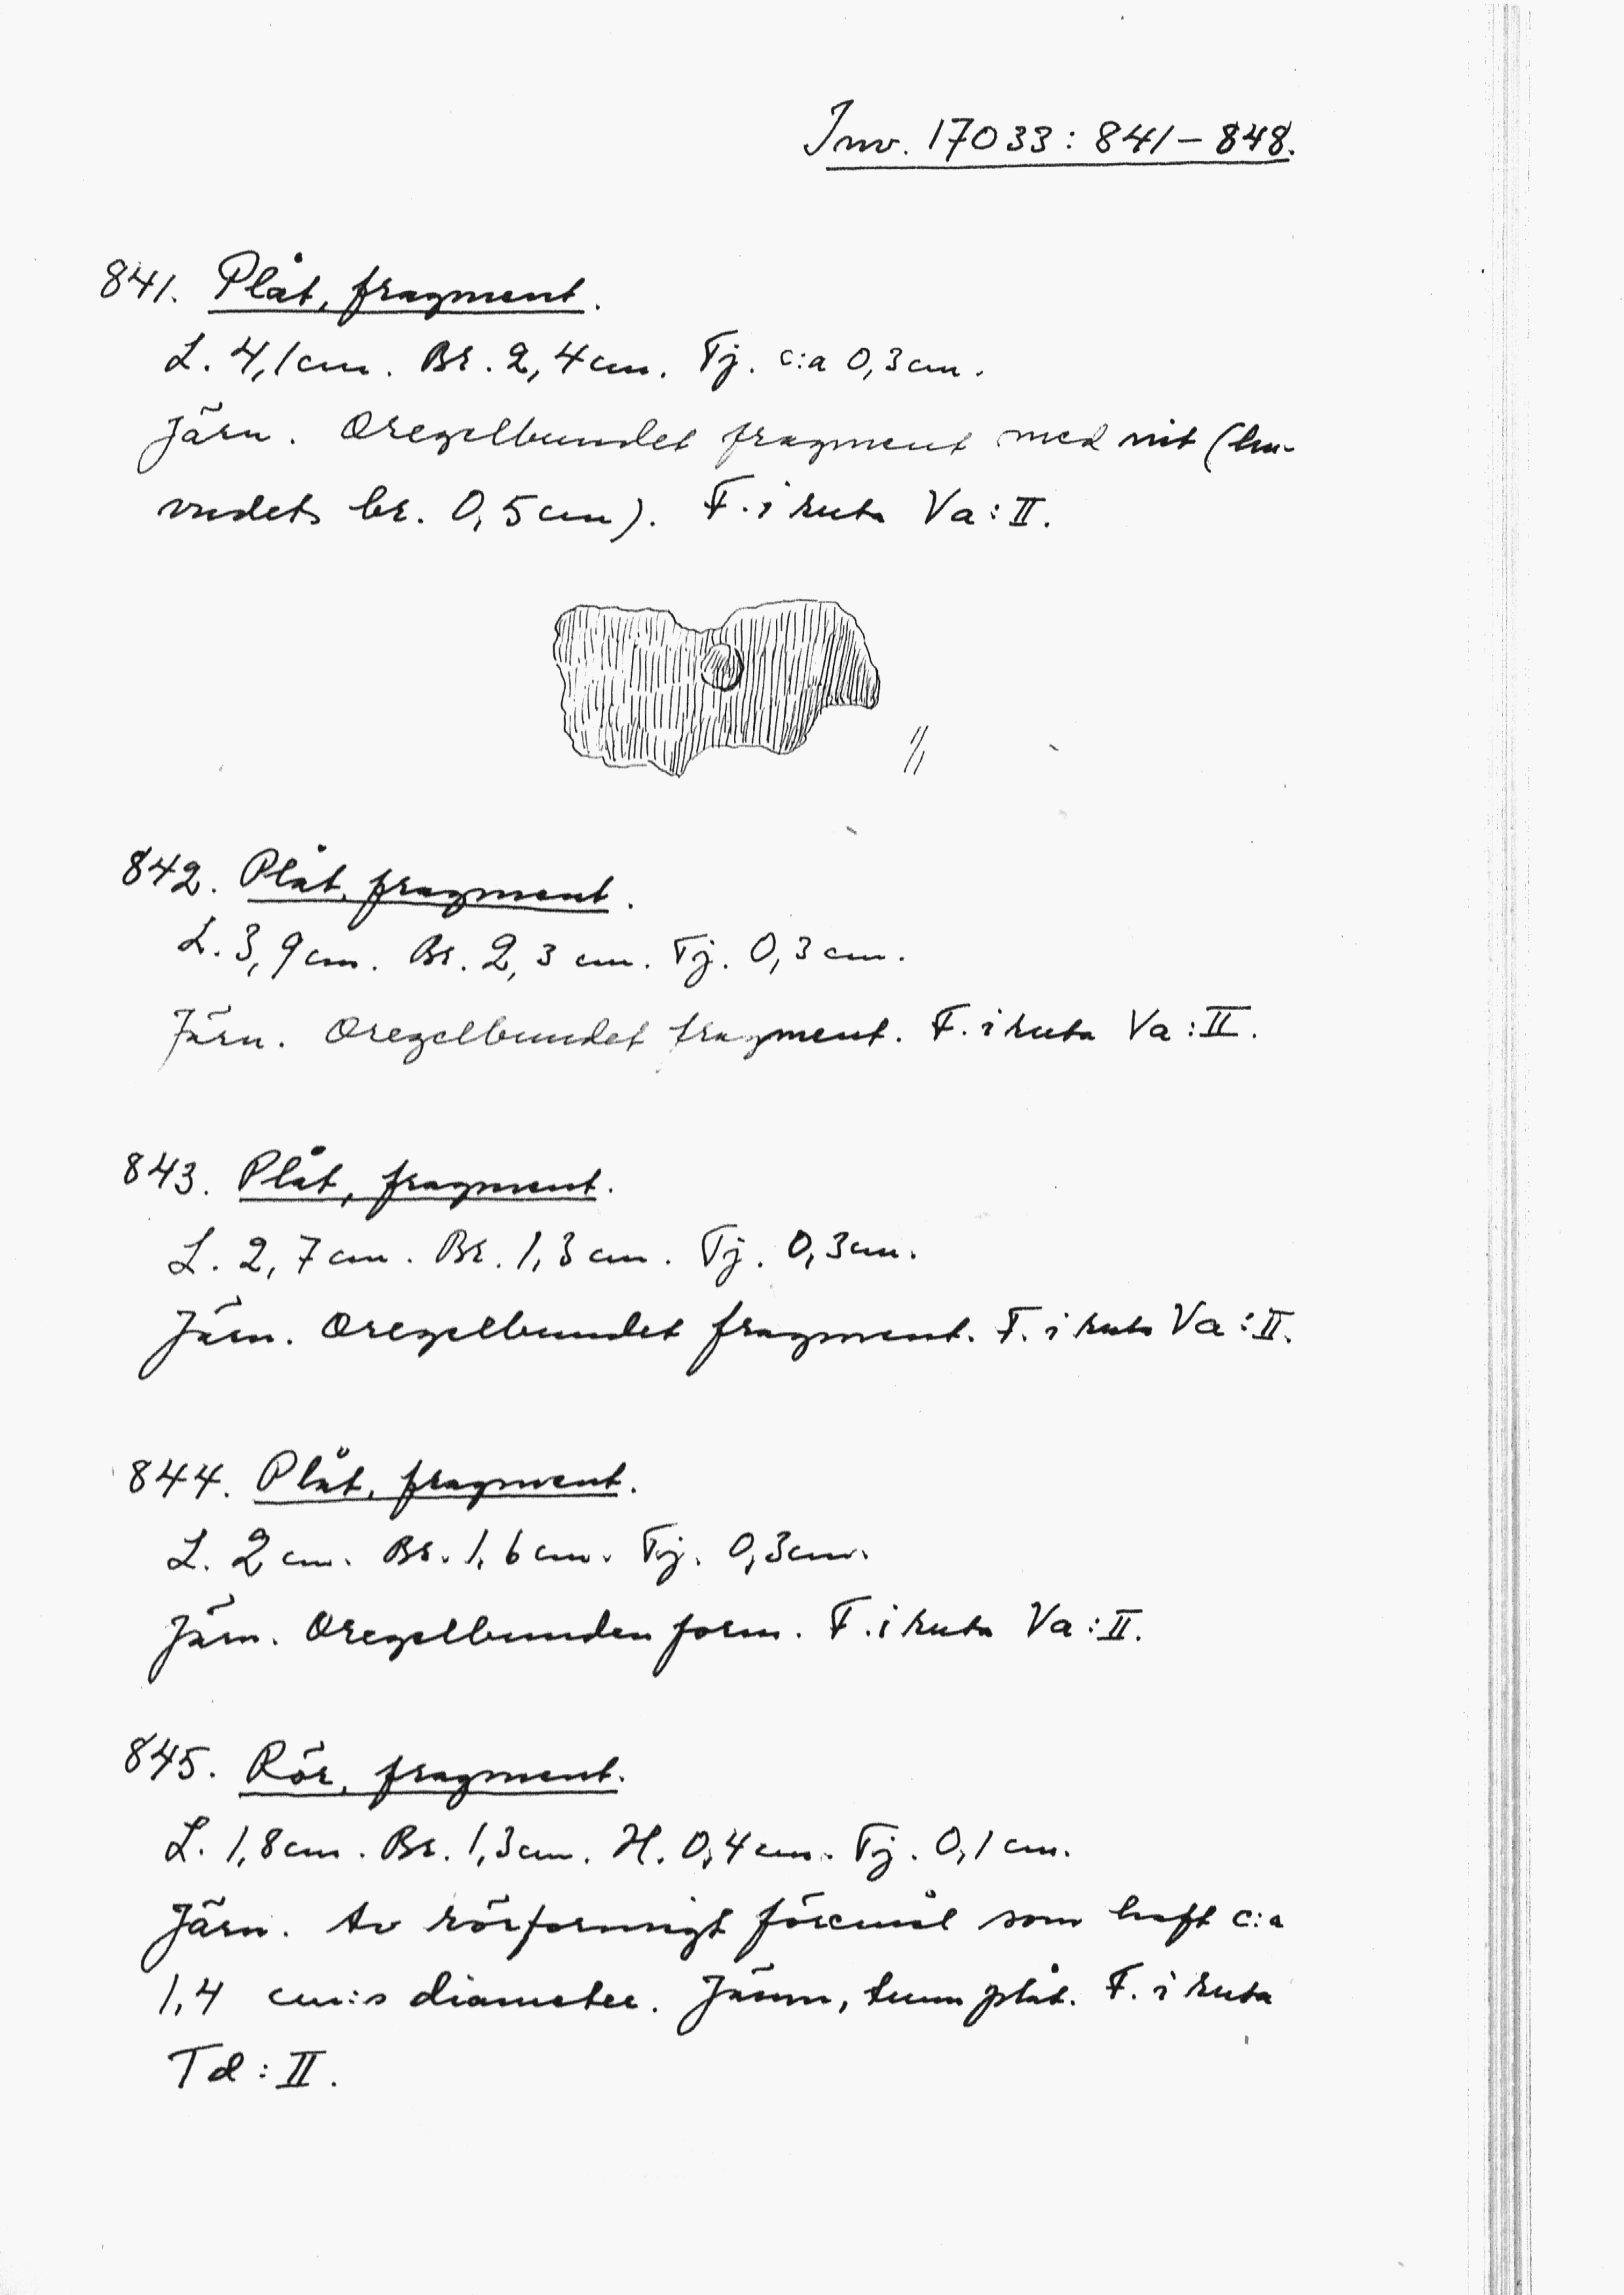 Inv. 17033: 841–848.
841. Plåt, fragment.
L. 4,1 cm. Br. 2,4 cm. Tj. c:a 0,3 cm.
Järn. Oregelbundet fragment med nit (hu-
vudets br. 0,5 cm). F. i ruta Va: II.
1/1
842. Plåt, fragment.
L. 3,9 cm. Br. 2,3 cm. Tj. 0,3 cm.
Järn. Oregelbundet fragment. F. i ruta Va: II.
843. Plåt, fragment.
L. 2,7 cm. Br. 1,3 cm. Tj. 0,3 cm.
Järn. Oregelbundet fragment. F. i ruta Va: II.
844. Plåt, fragment.
L. 2 cm. Br. 1,6 cm. Tj. 0,3 cm.
Järn. Oregelbunden form. F. i ruta Va: II.
845. Rör, fragment.
L. 1,8 cm. Br. 1,3 cm. H. 0,4 cm. Tj. 0,1 cm.
Järn. Av rörformigt föremål som haft c:a
1,4 cm:s diameter. Jämn, tunn plåt. F. i ruta
Td: II.